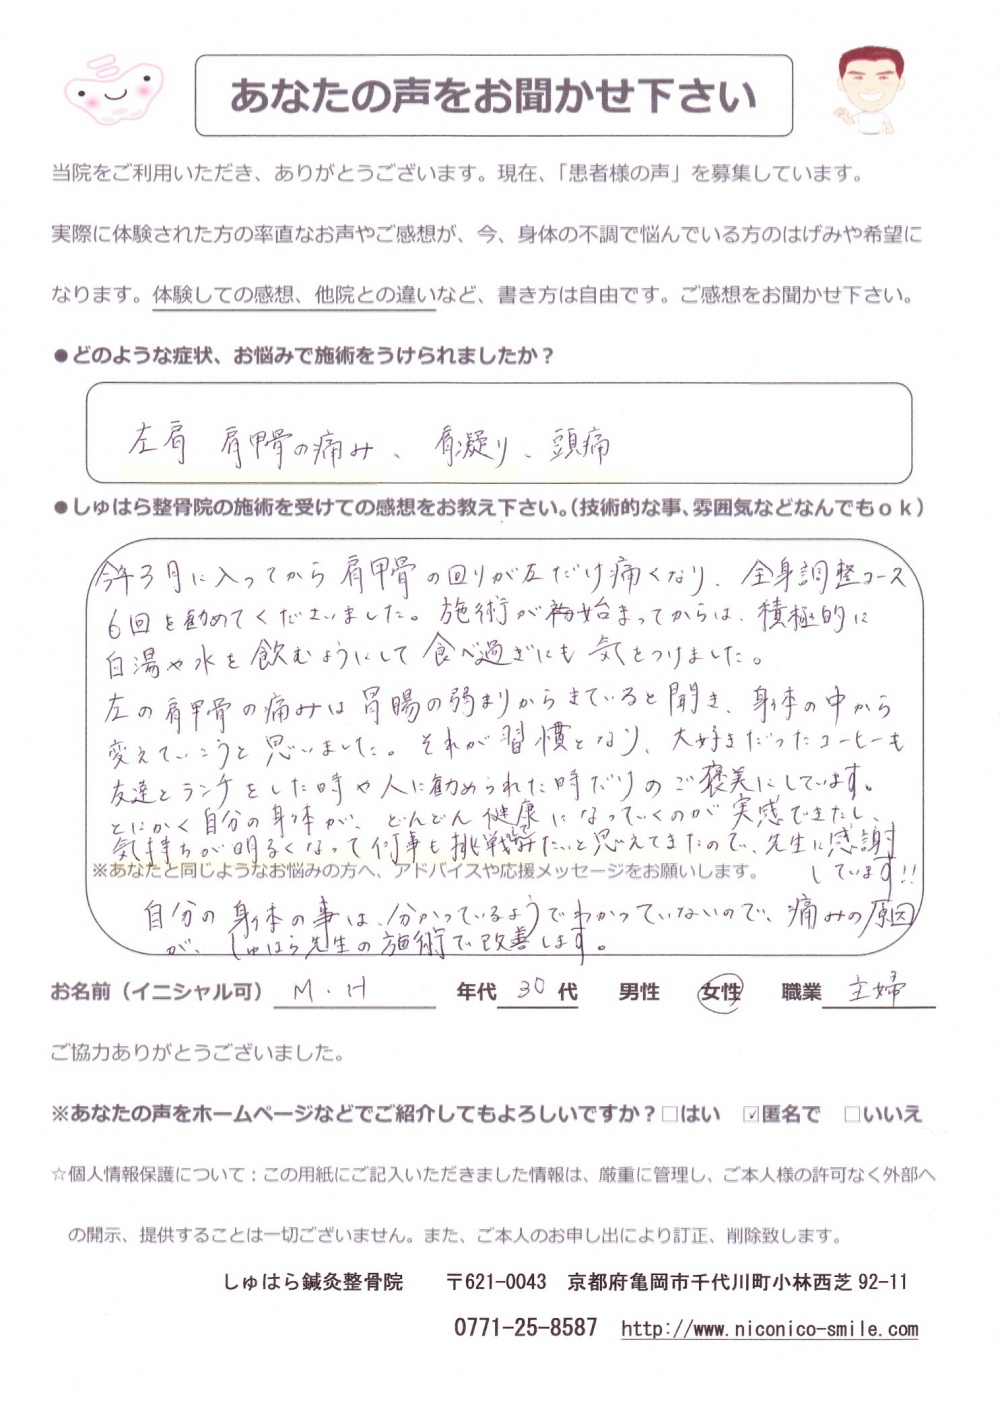 あなたの声をお聞かせ下さい
当院をご利用いただき、ありがとうございます。現在、「患者様の声」を募集しています。
実際に体験された方の率直なお声やご感想が、今、身体の不調で悩んでいる方のはげみや希望に
なります。体験しての感想、他院との違いなど、書き方は自由です。ご感想をお聞かせ下さい。
●どのような症状、お悩みで施術をうけられましたか？
左肩 肩甲骨の痛み、肩凝り、頭痛
●しゅはら整骨院の施術を受けての感想をお教え下さい。（技術的な事、雰囲気などなんでもｏｋ）
今年3月に入ってから肩甲骨の回りが左だけ痛くなり、全身調整コース
6回を勧めてくださいました。施術が始まってからは、積極的に
白湯や水を飲むようにして食べ過ぎにも気をつけました。
左の肩甲骨の痛みは胃腸の弱まりからきていると聞き、身体の中から
変えていこうと思いました。それが習慣となり、大好きだったコーヒーも
友達とランチをした時や人に勧められた時だけのご褒美にしています。
とにかく自分の身体が、どんどん健康になっていくのが実感できたし、
気持ちが明るくなって何事も挑戦してみたいと思えてきたので、先生に感謝
しています!!
※あなたと同じようなお悩みの方へ、アドバイスや応援メッセージをお願いします。
自分の身体の事は、分かっているようでわかっていないので、痛みの原因
が、しゅはら先生の施術で改善します。
お名前（イニシャル可） M・H 年代 30 代 男性 女性 職業 主婦
ご協力ありがとうございました。
※あなたの声をホームページなどでご紹介してもよろしいですか？□はい ☑匿名で □いいえ
☆個人情報保護について：この用紙にご記入いただきました情報は、厳重に管理し、ご本人様の許可なく外部へ
の開示、提供することは一切ございません。また、ご本人のお申し出により訂正、削除致します。
しゅはら鍼灸整骨院 〒621-0043 京都府亀岡市千代川町小林西芝 92-11
0771-25-8587 http://www.niconico-smile.com